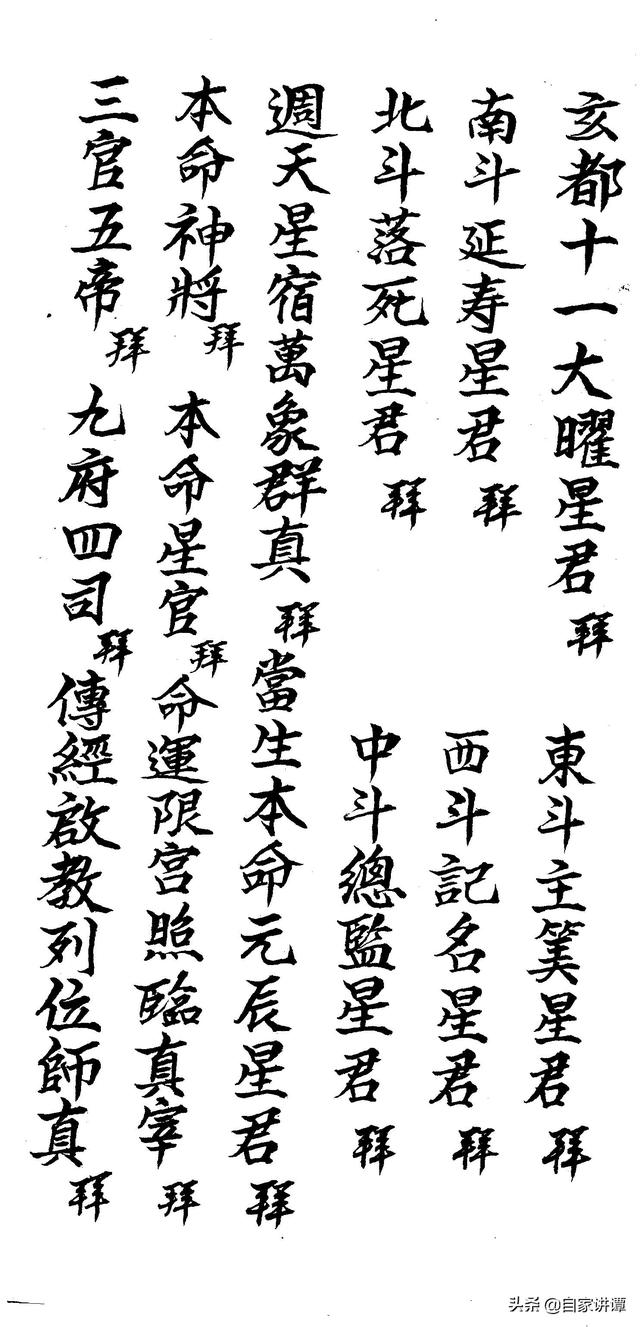 玄都十一大曜星君 拜 東斗主筭星君 拜
南斗延寿星君 拜 西斗記名星君 拜
北斗落死星君 拜 中斗總監星君 拜
週天星宿萬象群真 拜 當生本命元辰星君 拜
本命神將 拜 本命星官 拜 命運限宮照臨真宰 拜
三官五帝 拜 九府四司 拜 傳經啟教列位師真 拜
头条 @自家讲谭